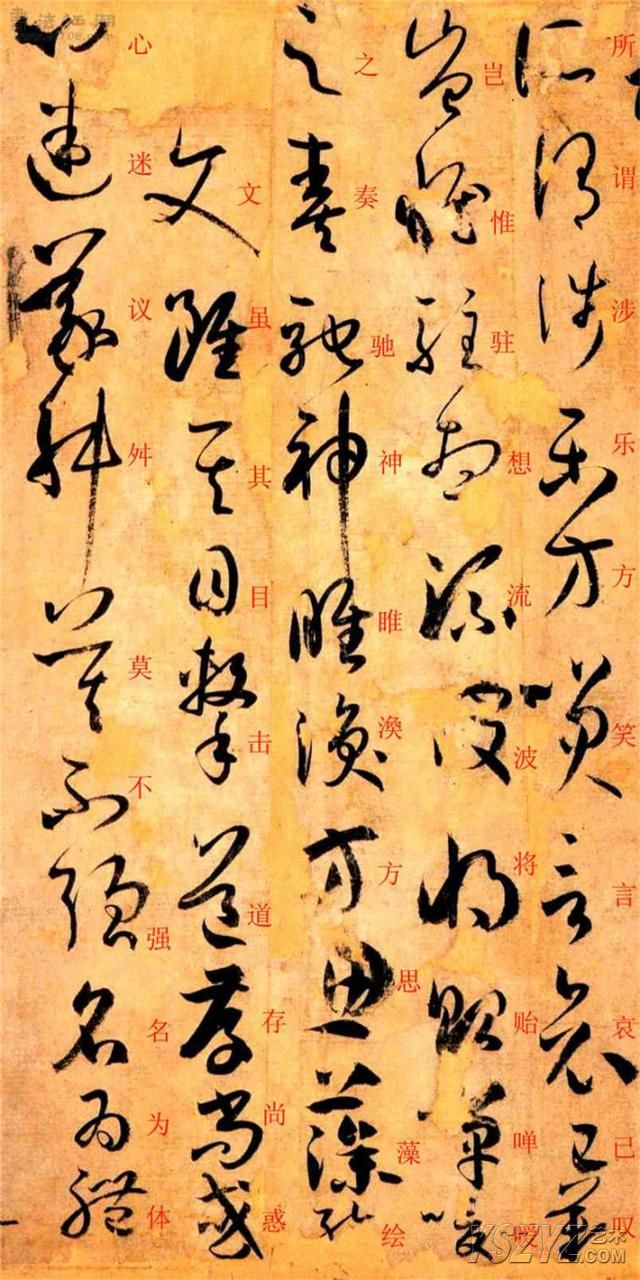 所谓涉乐方笑言哀已叹
岂惟驻想流波将贻啴嗳
之奏驰神睢渙方思藻绘
文虽其目击道存尚惑
心迷议舛莫不强名为体